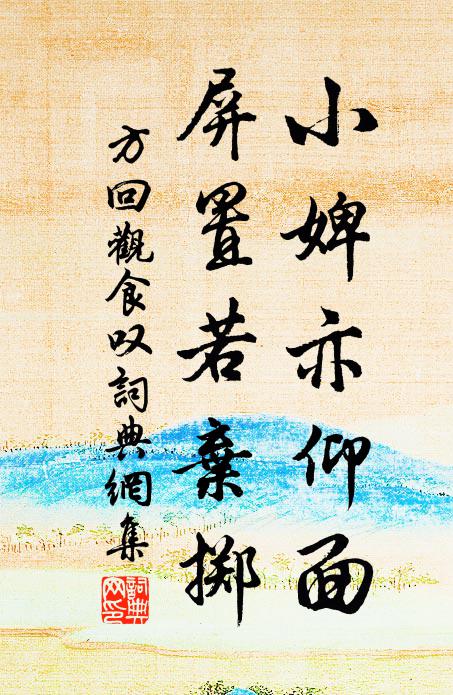 小婢亦仰面
屏置若棄擲
方回觀食叹詞典網集